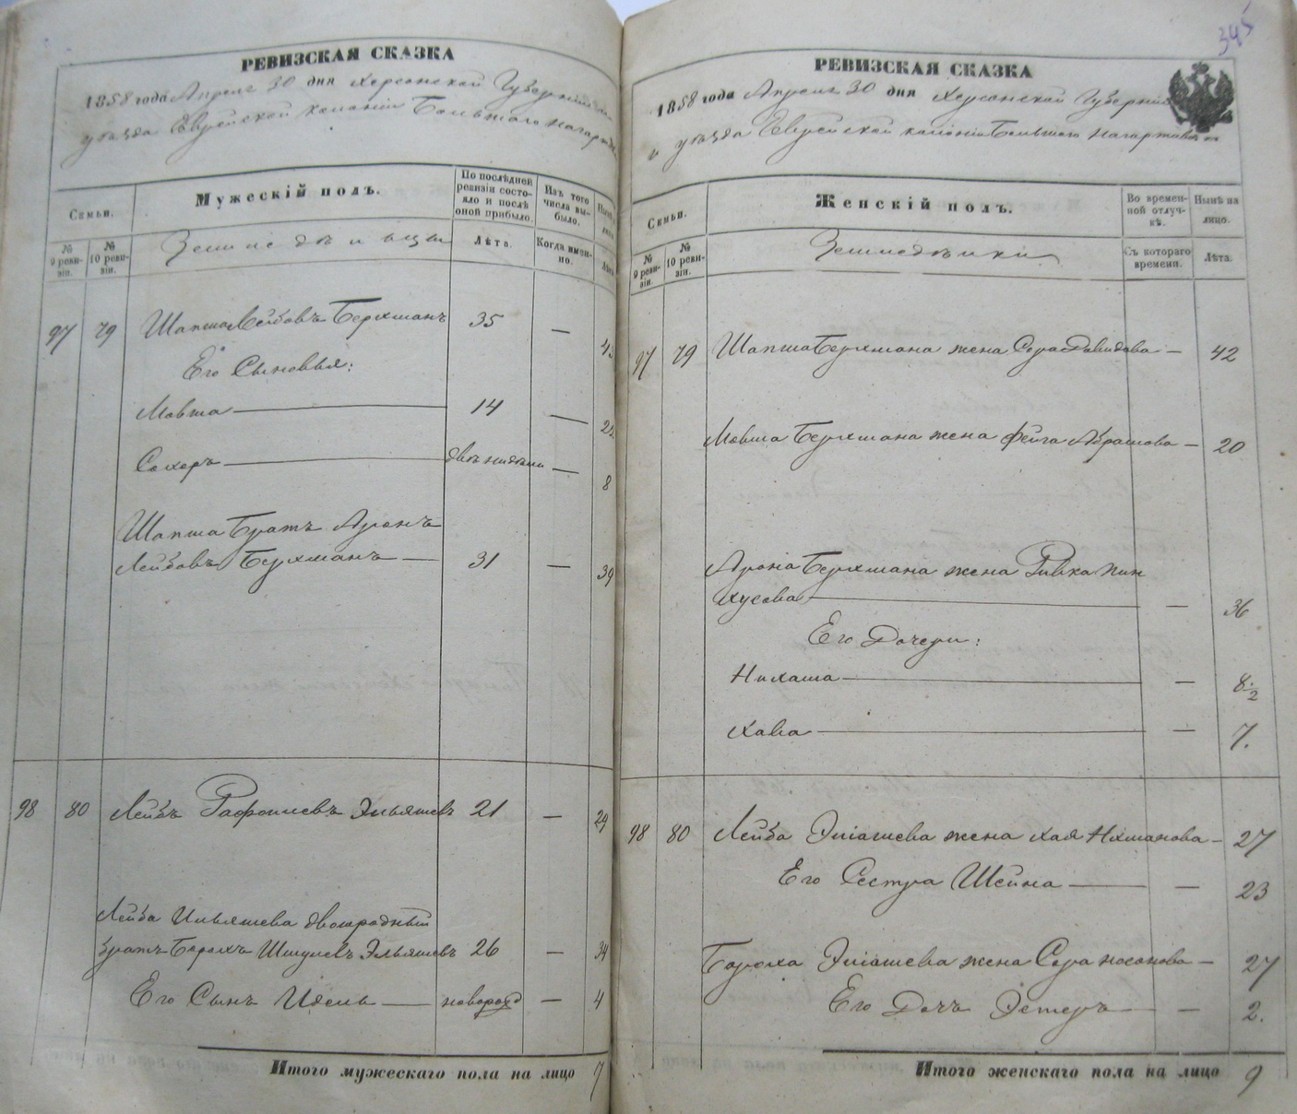 РЕВИЗСКАЯ СКАЗКА
1858 года Апреля 30 дня Херсонской Губерніи
уѣзда Еврейской колоніи Большого Нагар
Мужескій полъ.
По послѣдней ревизіи состояло и послѣ оной прибыло.
Изъ того числа выбыло.
Семьи.
№ 9 ревизіи.
№ 10 ревизіи.
Земледѣльцы
Лѣта.
Когда именно.
97 79 Шапша Лейбовъ Берхманъ 35 —
Его Сыновья:
Мовша — 14 —
Сахеръ — двѣ недели — 8
Шапша Братъ Аронъ
Лейбовъ Берхманъ — 31 — 39
98 80 Лейбъ Эльяшевъ 21 —
Лейба Ильяшева двоюродный
братъ Борохъ Шмулевъ Эльяшевъ 26 — 34
Его Сынъ — новорожд — 4
Итого мужескаго пола на лицо 7
345
РЕВИЗСКАЯ СКАЗКА
1858 года Апреля 30 дня Херсонской Губерніи
и уѣзда Еврейской колоніи Большого Нагартава
Женскій полъ.
Во временной отлучкѣ.
Нынѣ на лицо.
Семьи.
№ 9 ревизіи.
№ 10 ревизіи.
Земледѣлки
Съ котораго времени.
Лѣта.
97 79 Шапша Берхмана жена Сора Давидова — 42
Мовша Берхмана жена Фейга Абрамова — 20
Арона Берхмана жена Ривка Пин
хусова — — 36
Его Дочери:
Нихама — — 8½
Хава — — 7.
98 80 Лейба Эліашева жена Хая Нхманова — 27
Его Сестра Шейна — — 23
Бороха Эліашева жена Сора Носонова — 27
Его Дочь Эстеръ — — 2.
Итого женскаго пола на лицо 9